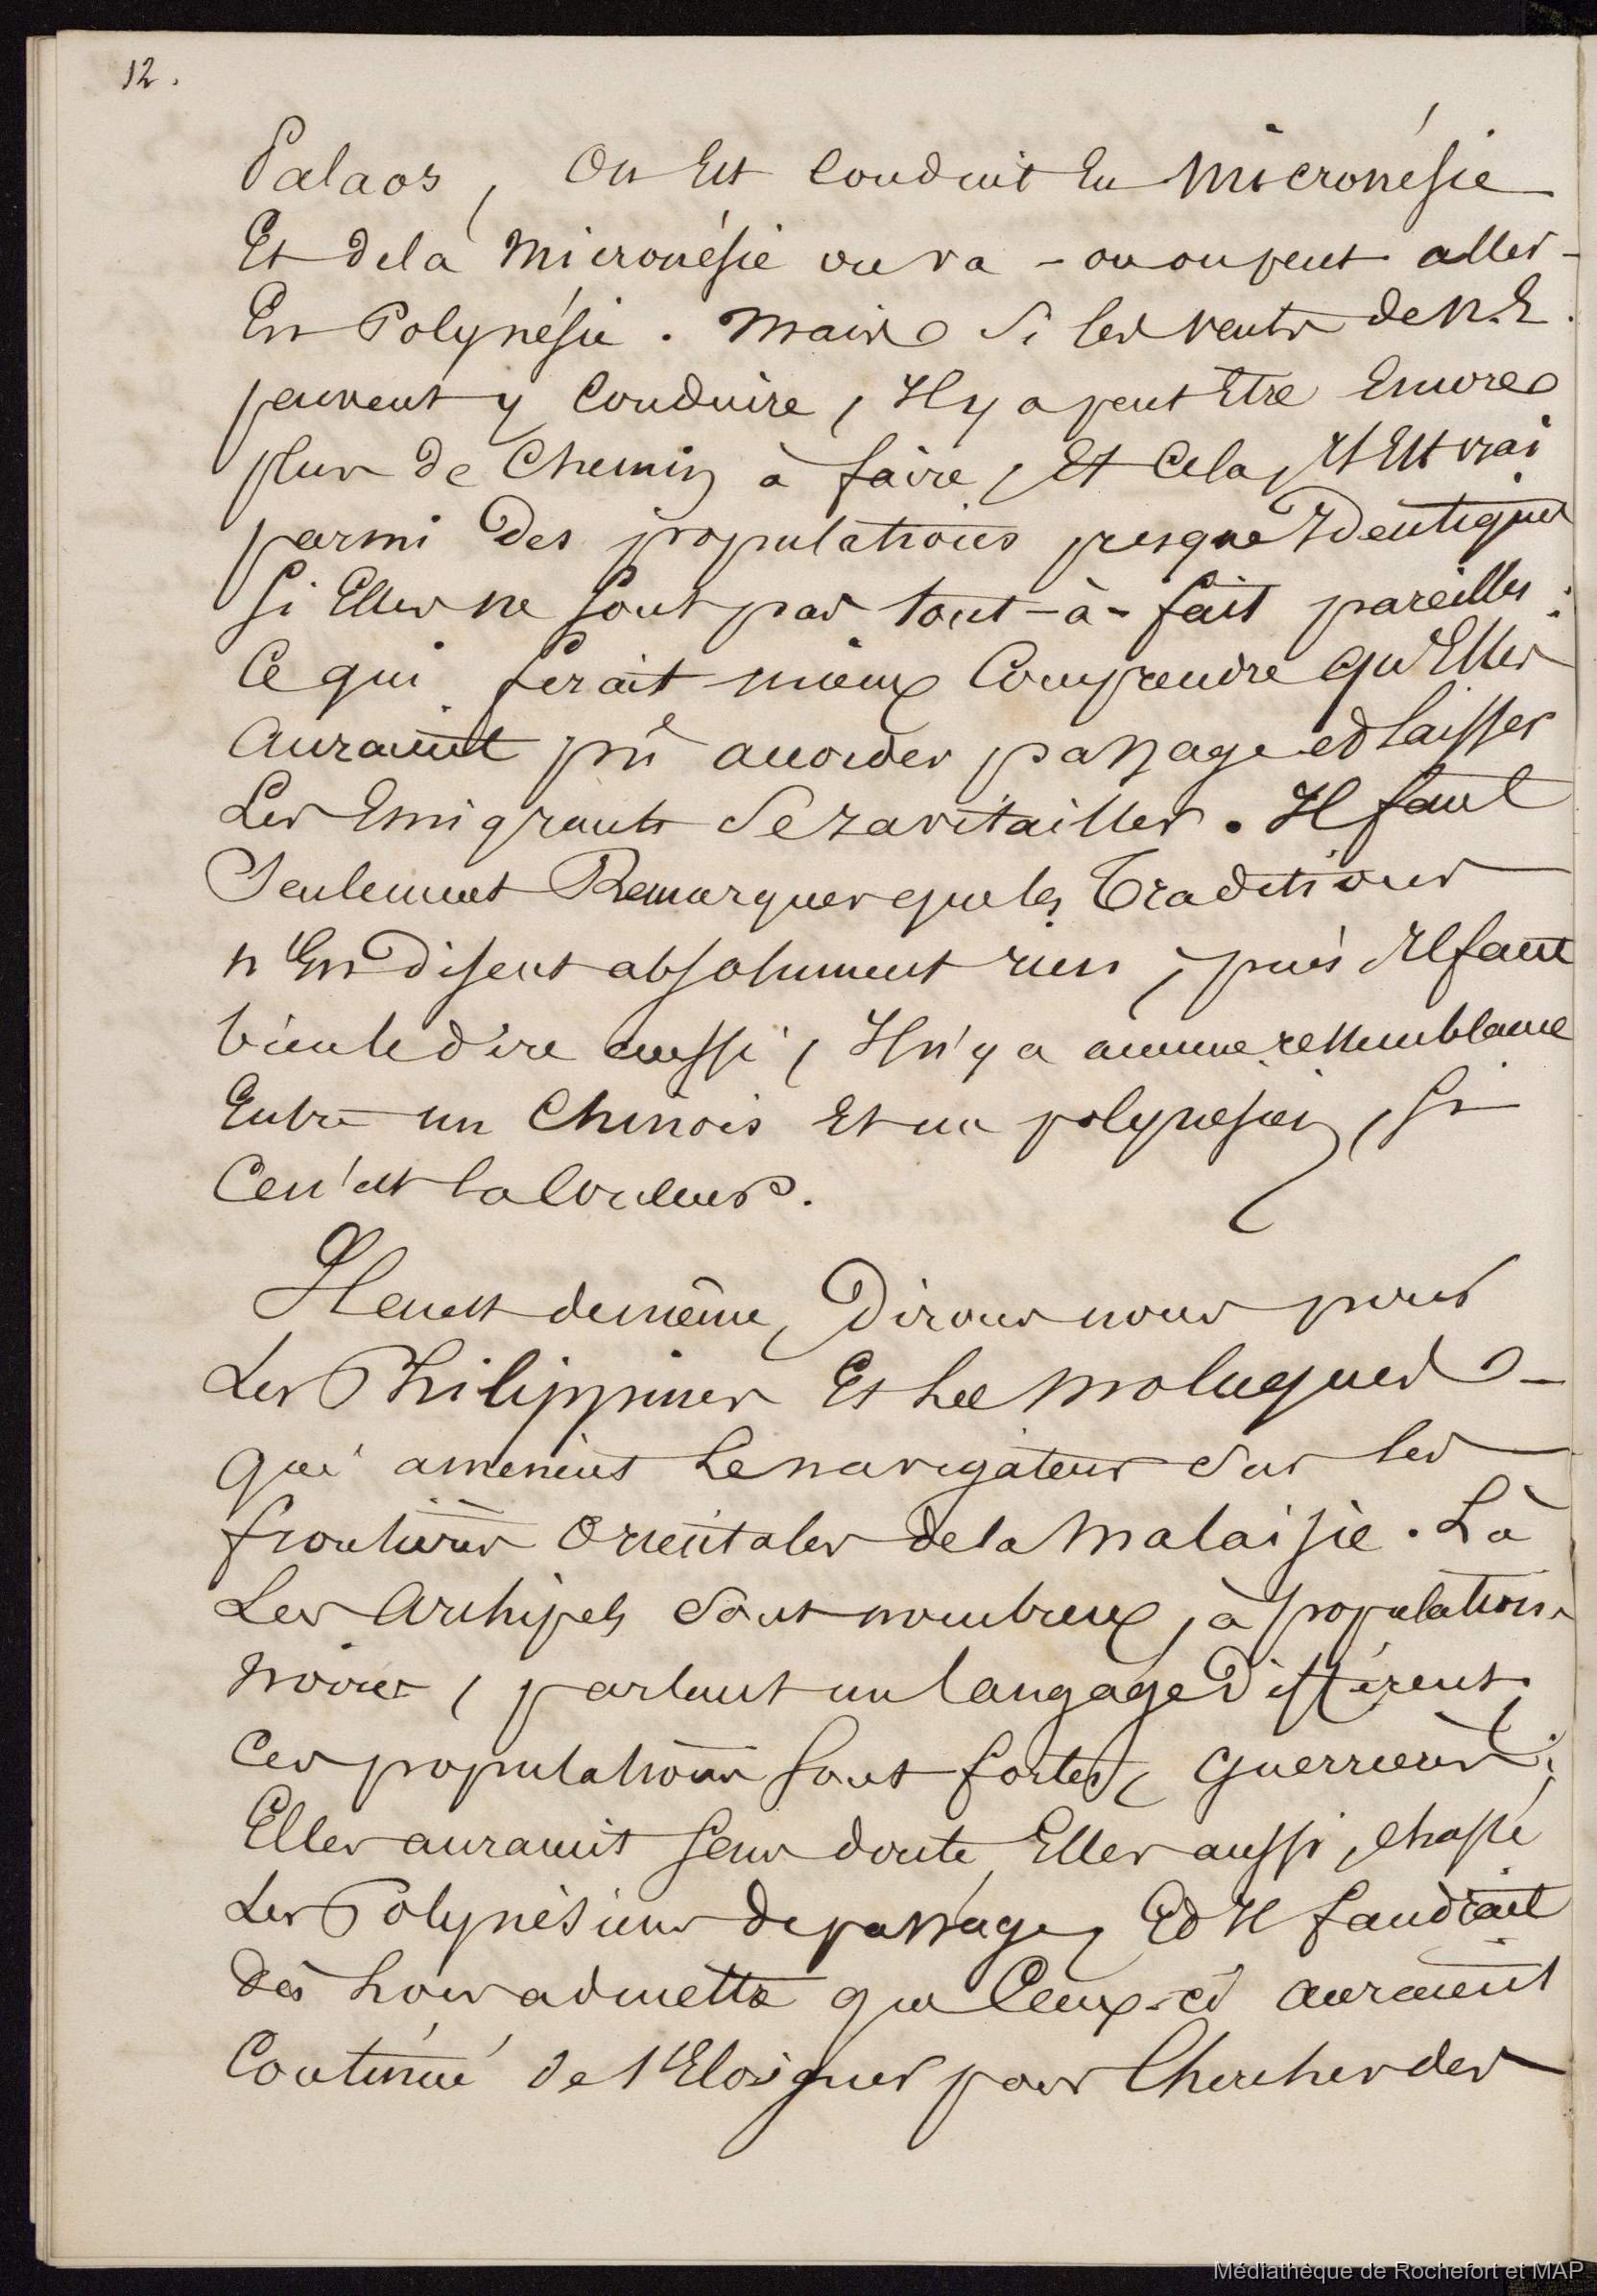 12.
Palaos, On Est Conduit En Micronésie
Et de la Micronésie on va - ou on peut aller -
En Polynésie. Mais si les vents de N.E.
peuvent y Conduire, Il y a peut Etre Encore
plus de Chemin à faire, Et Cela, Il Est vrai
parmi Des populations presque Identiques
si Elles ne sont pas tout-à-fait pareilles :
Ce qui ferait mieux Comprendre qu'Elles
Auraient pû accorder passage et laisser
Les Emigrants se ravitailler. Il faut
Seulement Remarquer que les Traditions
n'En Disent absolument rien, puis Il faut
bien le dire aussi, Il n'y a aucune ressemblance
Entre un Chinois Et un polynésien, si
Ce n'est la Couleur.
Il en est de même, Dirons nous pour
Les Philippines Et Les Moluques -
qui amènent Le navigateur sur les
frontières Orientales de la Malaisie. Là
Les Archipels sont nombreux, à populations
noires, parlant un langage Différent,
Ces populations sont fortes, guerrières ;
Elles auraient sans doute, Elles aussi, chassé
Les Polynésiens de passage, Et Il faudrait
Dès Lors admettre que Ceux-ci auraient
Continué de s'Eloigner pour Chercher des
Médiathèque de Rochefort et MAP